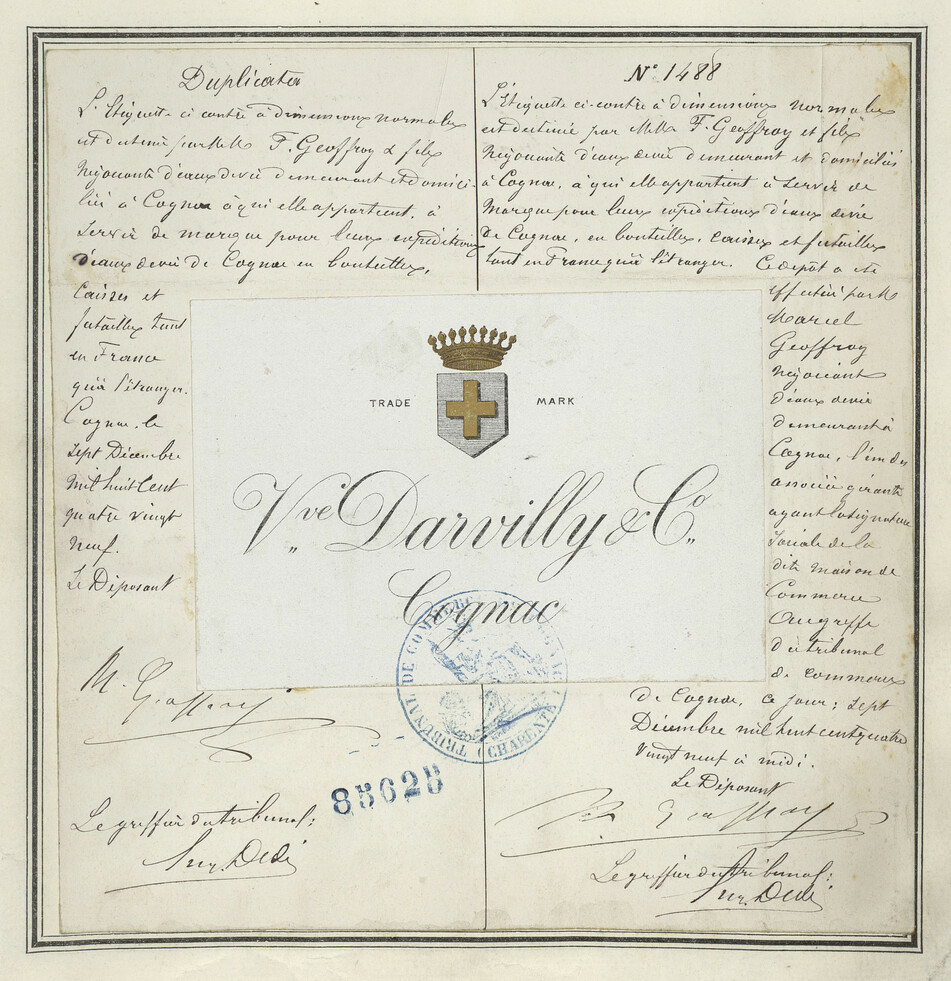 Duplicata
L'Etiquette ci contre à dimensions normales
est destinée par MM F. Geoffroy & fils
Négociants d'eaux de vie demeurant et domici-
liés à Cognac à qui elle appartient, à
servir de marque pour leurs expéditions
d'eaux de vie de Cognac en bouteilles,
caisses et
futailles tant
en France
qu'à l'étranger.
Cognac, le
Sept Décembre
mil huit cent
quatre vingt
neuf.
Le Déposant
M. Geoffroy
Le greffier du tribunal;
N° 1488
L'Etiquette ci-contre à dimensions normales
est destinée par MM F. Geoffroy et fils
Négociants d'eaux de vie demeurant et domiciliés
à Cognac, à qui elle appartient à servir de
marque pour leurs expéditions d'eaux de vie
de Cognac, en bouteilles, caisses et futailles
tant en France qu'à l'étranger. Ce dépôt a été
effectué par M
Marcel
Geoffroy
négociant
d'eaux de vie
demeurant à
Cognac, l'un des
associés gérants
ayant la signature
sociale de la
dite maison de
Commerce
au greffe
du tribunal
de commerce
de Cognac, ce jour; sept
Décembre mil huit cent quatre
vingt neuf à midi.
Le Déposant
M. Geoffroy
Le greffier du tribunal;
TRADE MARK
Vve Darvilly & Co
Cognac
TRIBUNAL DE COMMERCE COGNAC (CHARENTE)
85625